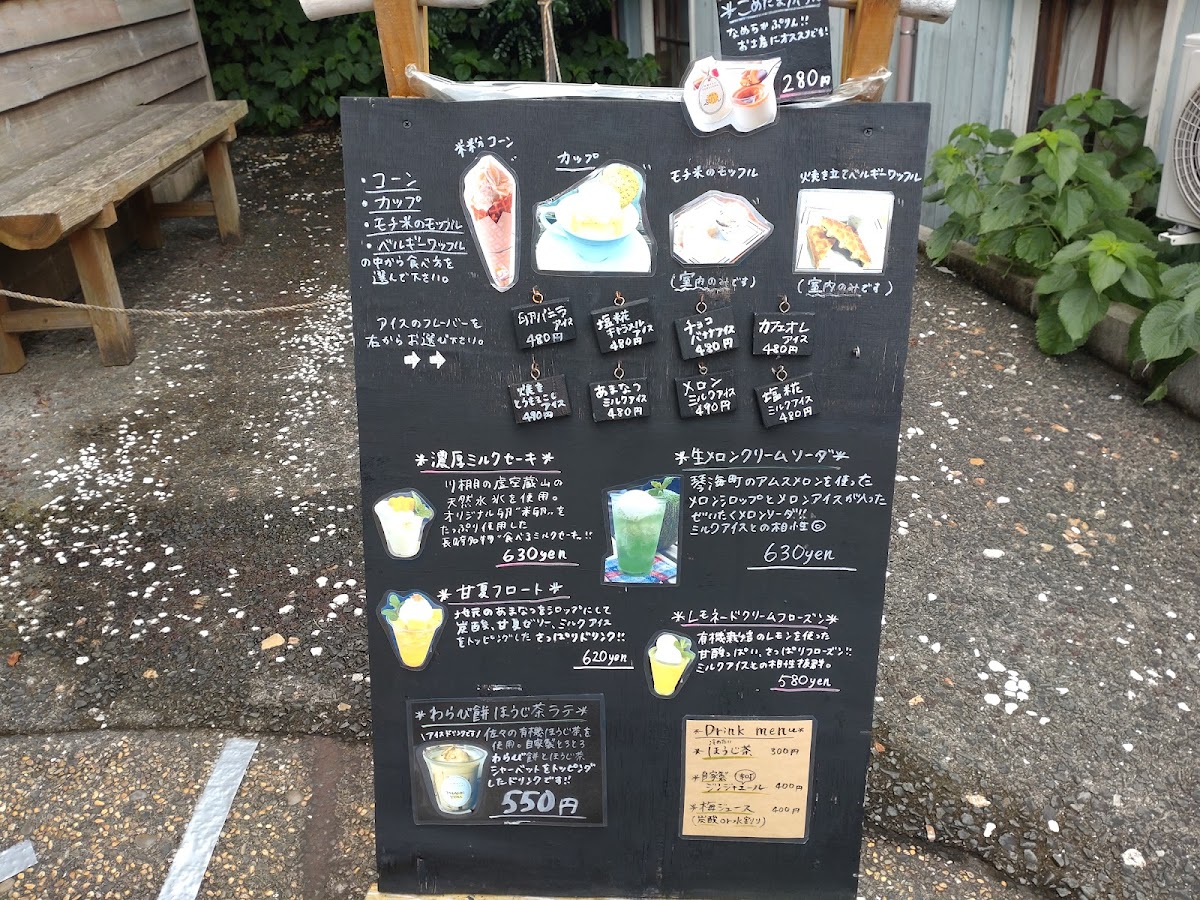 なめらかぷりん!!
お土産にオススメです!
280円
米粉コーン
カップ
モチ米のモッフル
焼き立てベルギーワッフル
・コーン
・カップ
・モチ米のモッフル
・ベルギーワッフル
の中から食べ方を
選んで下さい。
(室内のみです)
(室内のみです)
アイスのフレーバーを
右からお選び下さい。
→ →
卵バニラ
アイス
480円
塩糀
キャラメル
アイス
480円
チョコ
バナナアイス
480円
カフェオレ
アイス
480円
焼き
とうもろこし
アイス
490円
あまなつ
ミルクアイス
480円
メロン
ミルクアイス
490円
塩糀
ミルクアイス
480円
*濃厚ミルクセーキ*
川棚の虚空蔵山の
天然水氷を使用。
オリジナル卵"米卵"を
たっぷり使用した
長崎名物"食べるミルクセーキ"!!
630yen
*生メロンクリームソーダ*
琴海町のアムスメロンを使った
メロンシロップとメロンアイスが入った
ぜいたくメロンソーダ!!
ミルクアイスとの相性◎
630yen
*甘夏フロート*
地元のあまなつをシロップにして
炭酸、甘夏ゼリー、ミルクアイス
をトッピングしたさっぱりドリンク!!
620yen
*レモネードクリームフローズン*
有機栽培のレモンを使った
甘酸っぱい、さっぱりフローズン!!
ミルクアイスとの相性抜群。
580yen
*わらび餅ほうじ茶ラテ*
\アイスドリンクです/
佐々の有機ほうじ茶を
使用。自家製とろとろ
わらび餅とほうじ茶
シャーベットをトッピング
したドリンクです!!
550円
*Drink menu*
冷めたい
*ほうじ茶 300円
*自家製
ジンジャエール 400円
*梅ジュース 400円
(炭酸or水割り)